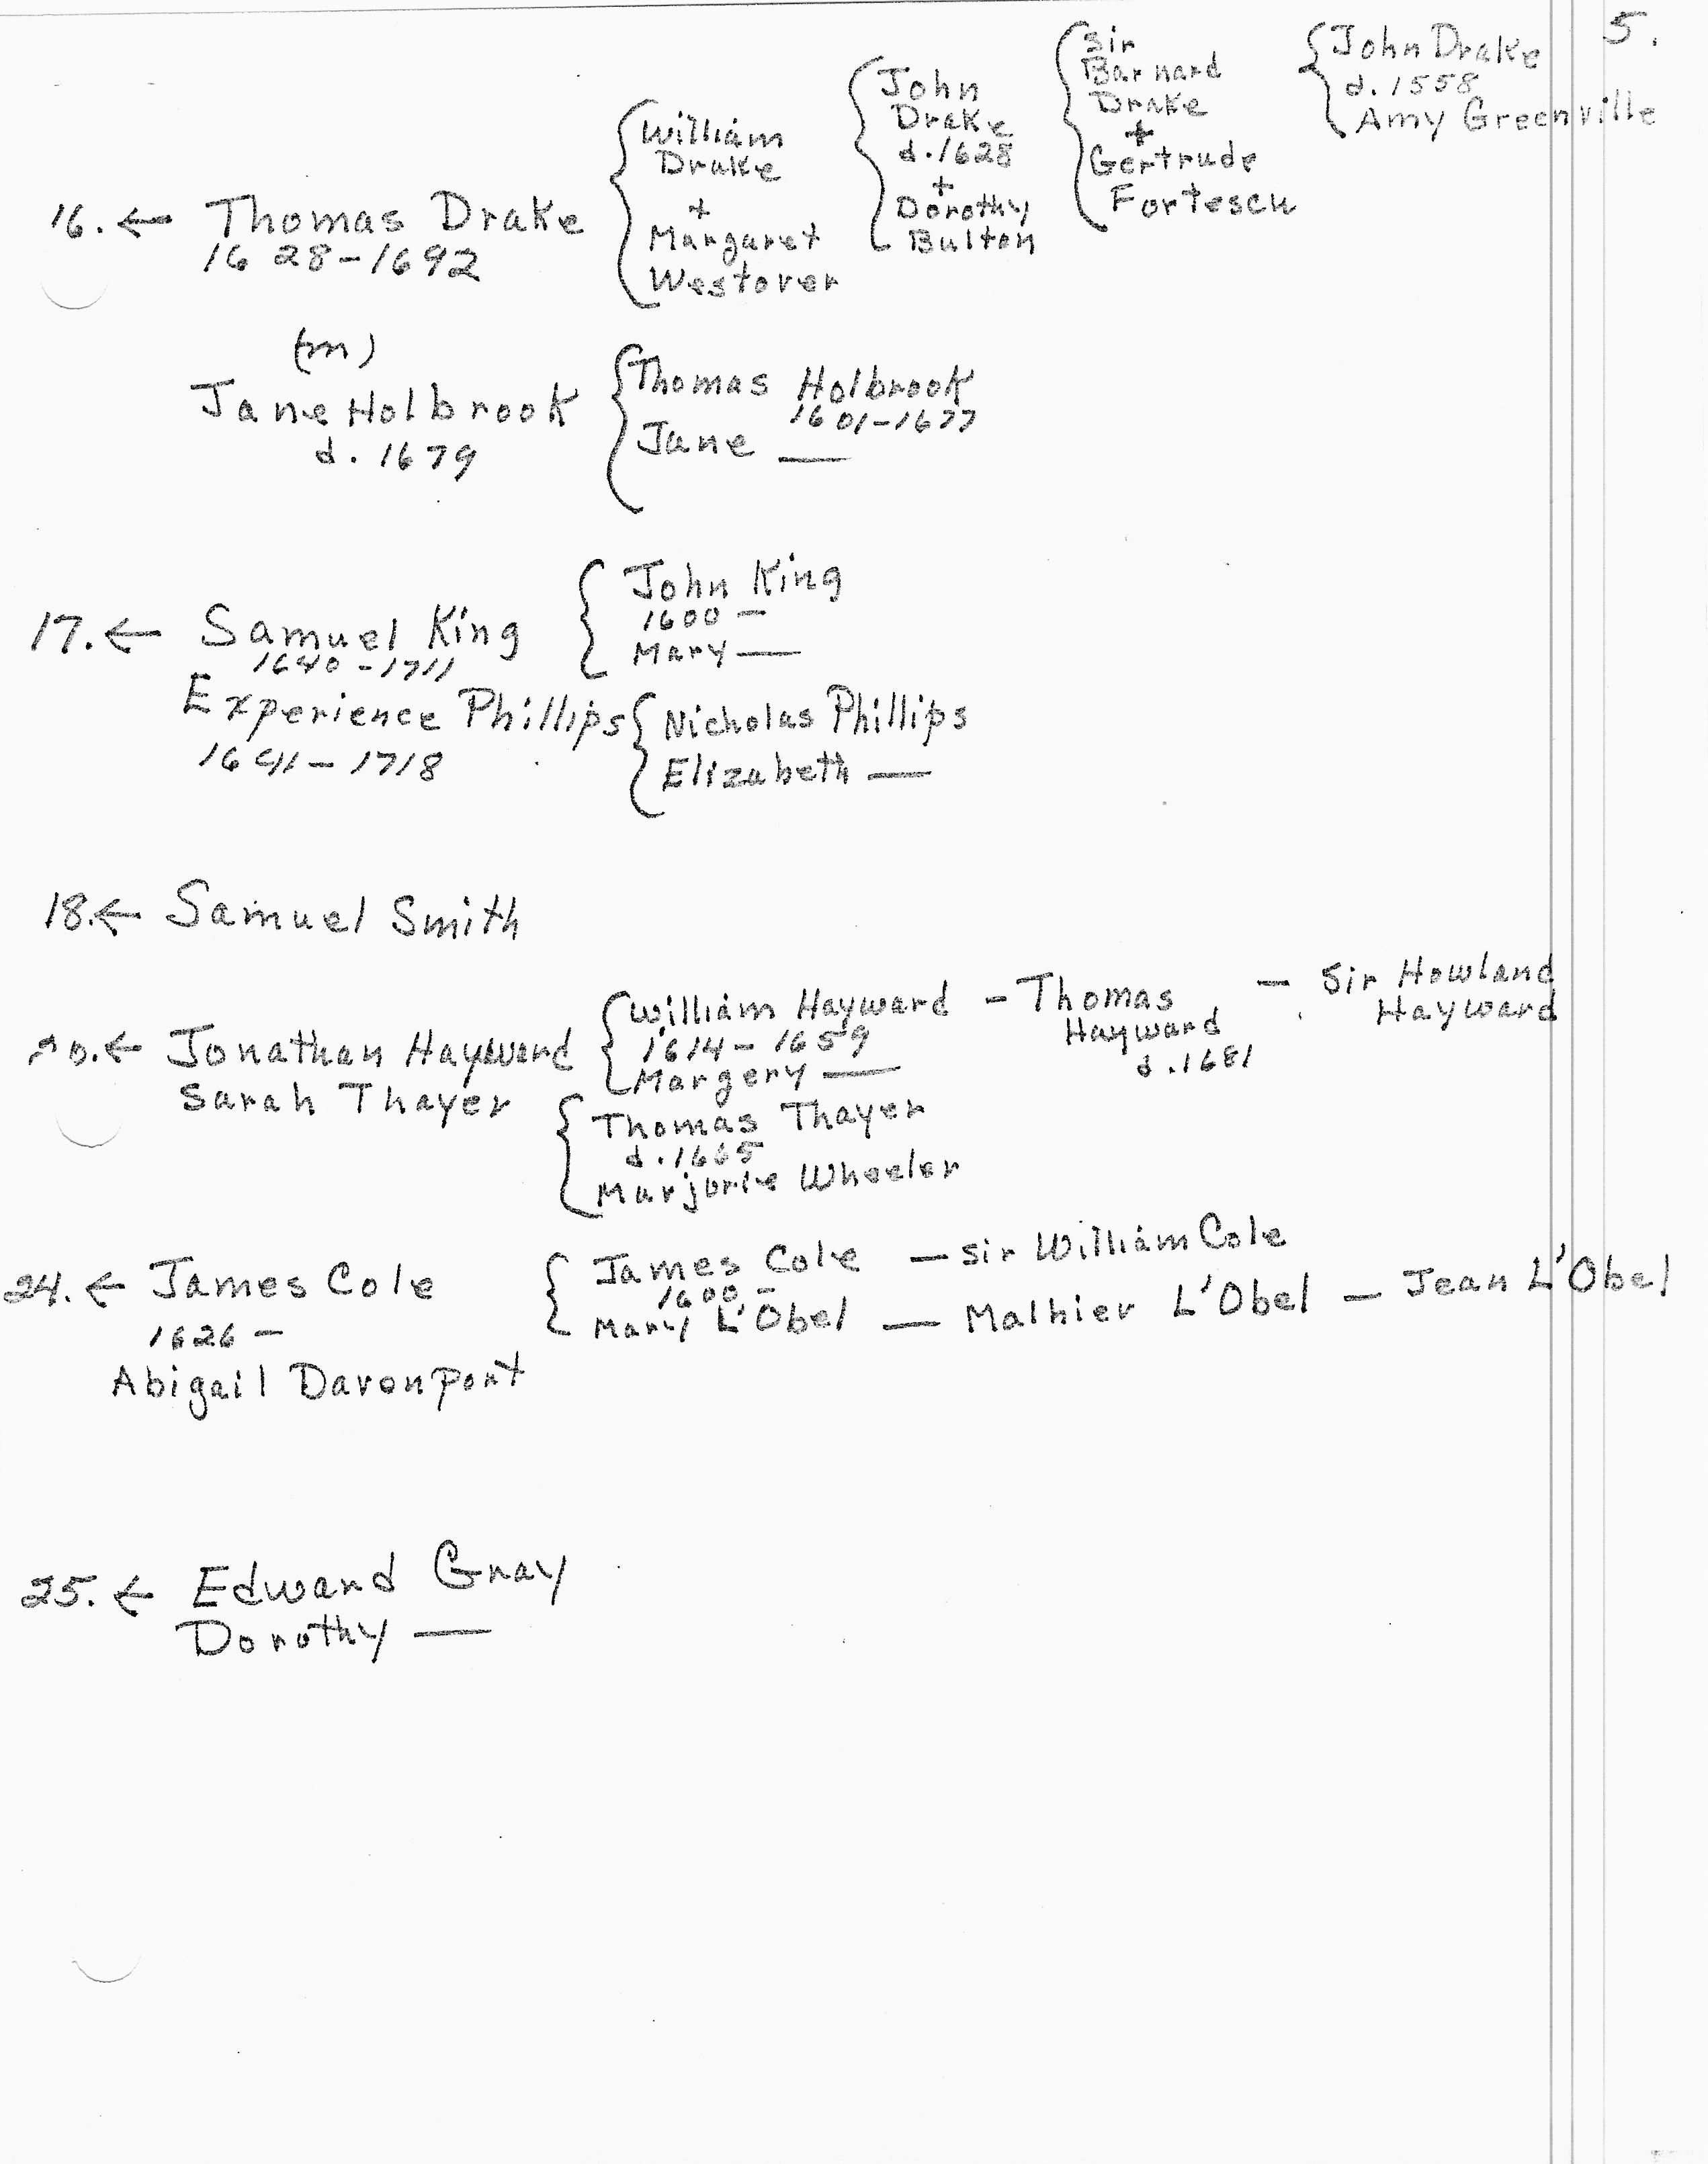 5.
16. ← Thomas Drake
1628-1692
{ William
Drake
+
Margaret
Westover
{ John
Drake
d. 1628
+
Dorothy
Bulton
{ Sir
Barnard
Drake
+
Gertrude
Fortescu
{ John Drake
d. 1558
Amy Greenville
(m)
Jane Holbrook
d. 1679
{ Thomas Holbrook
1601-1677
Jane —
17. ← Samuel King
1640-1711
{ John King
1600 —
Mary —
Experience Phillips
1641-1718
{ Nicholas Phillips
Elizabeth —
18. ← Samuel Smith
20. ← Jonathan Hayward
Sarah Thayer
{ William Hayward — Thomas
Hayward
d. 1681
— Sir Howland
Hayward
1614-1659
Margery —
{ Thomas Thayer
d. 1665
Marjorie Wheeler
24. ← James Cole
1626 —
Abigail Davenport
{ James Cole — Sir William Cole
1600 —
Mary L'Obel — Malhier L'Obel — Jean L'Obel
25. ← Edward Gray
Dorothy —